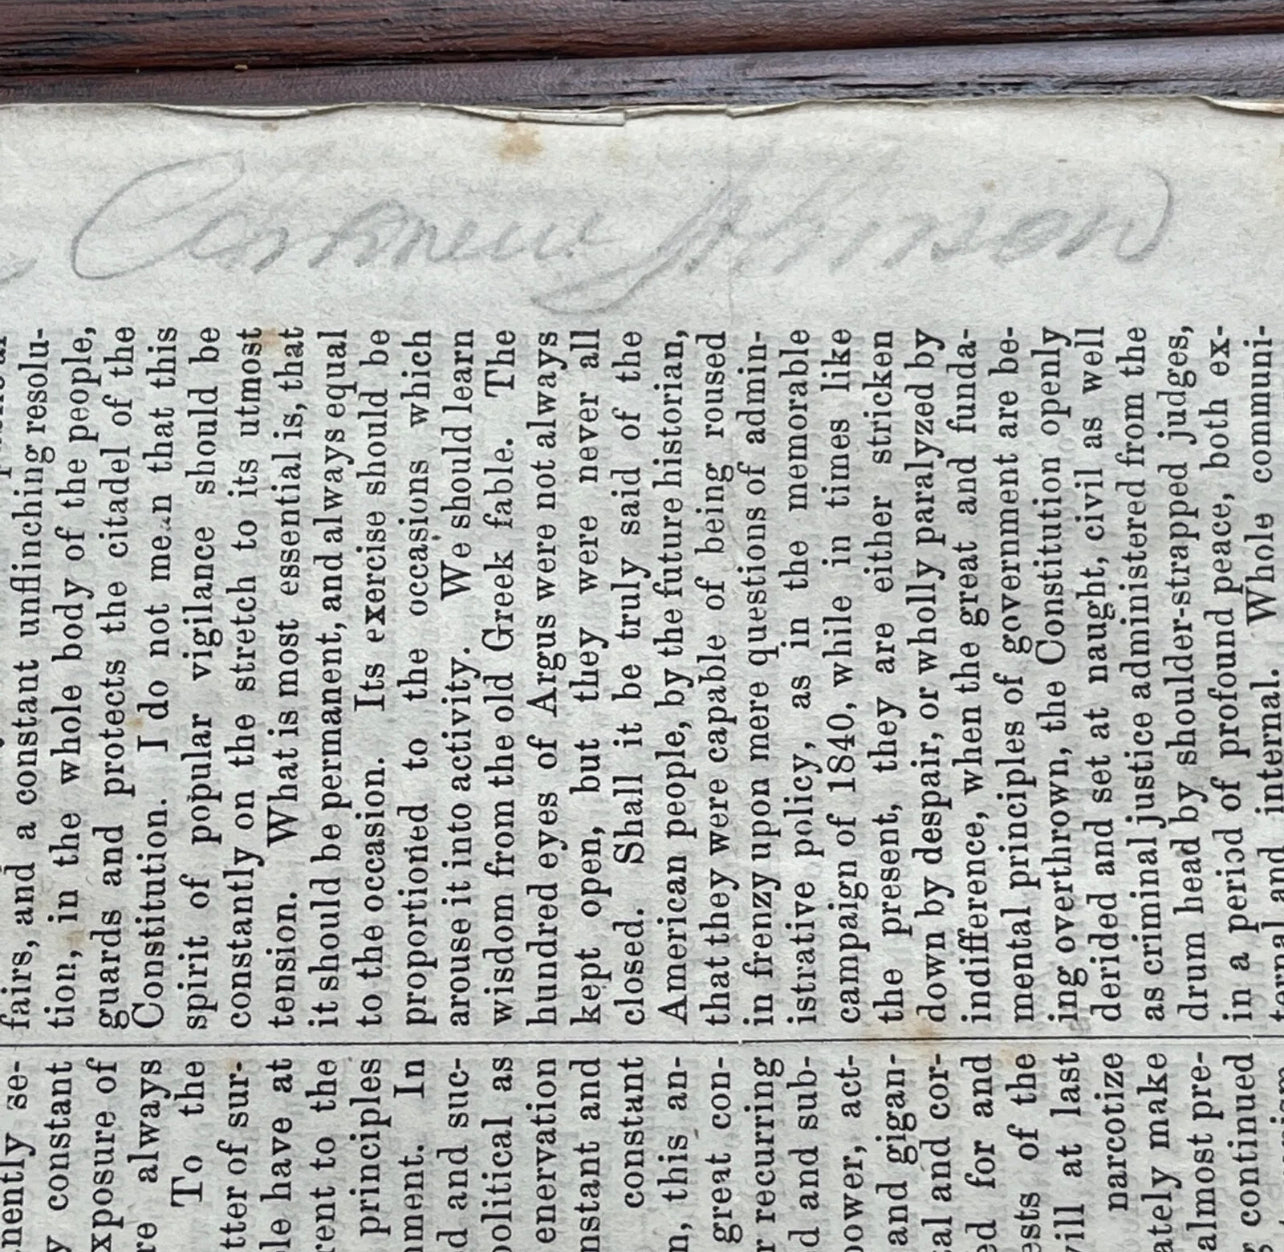 nently se-
y constant
xposure of
re always
To the
tter of sur-
le have at
rent to the
principles
nment. In
d and suc-
political as
enervation
nstant and
constant
n, this an-
great con-
r recurring
d and sub-
power, act-
and gigan-
al and cor-
ed for and
ests of the
will at last
narcotize
ately make
almost pre-
continued
fairs, and a constant unflinching resolu-
tion, in the whole body of the people,
guards and protects the citadel of the
Constitution. I do not mean that this
spirit of popular vigilance should be
constantly on the stretch to its utmost
tension. What is most essential is, that
it should be permanent, and always equal
to the occasion. Its exercise should be
proportioned to the occasions which
arouse it into activity. We should learn
wisdom from the old Greek fable. The
hundred eyes of Argus were not always
kept open, but they were never all
closed. Shall it be truly said of the
American people, by the future historian,
that they were capable of being roused
in frenzy upon mere questions of admin-
istrative policy, as in the memorable
campaign of 1840, while in times like
the present, they are either stricken
down by despair, or wholly paralyzed by
indifference, when the great and funda-
mental principles of government are be-
ing overthrown, the Constitution openly
derided and set at naught, civil as well
as criminal justice administered from the
drum head by shoulder-strapped judges,
in a period of profound peace, both ex-
ternal and internal. Whole communi-